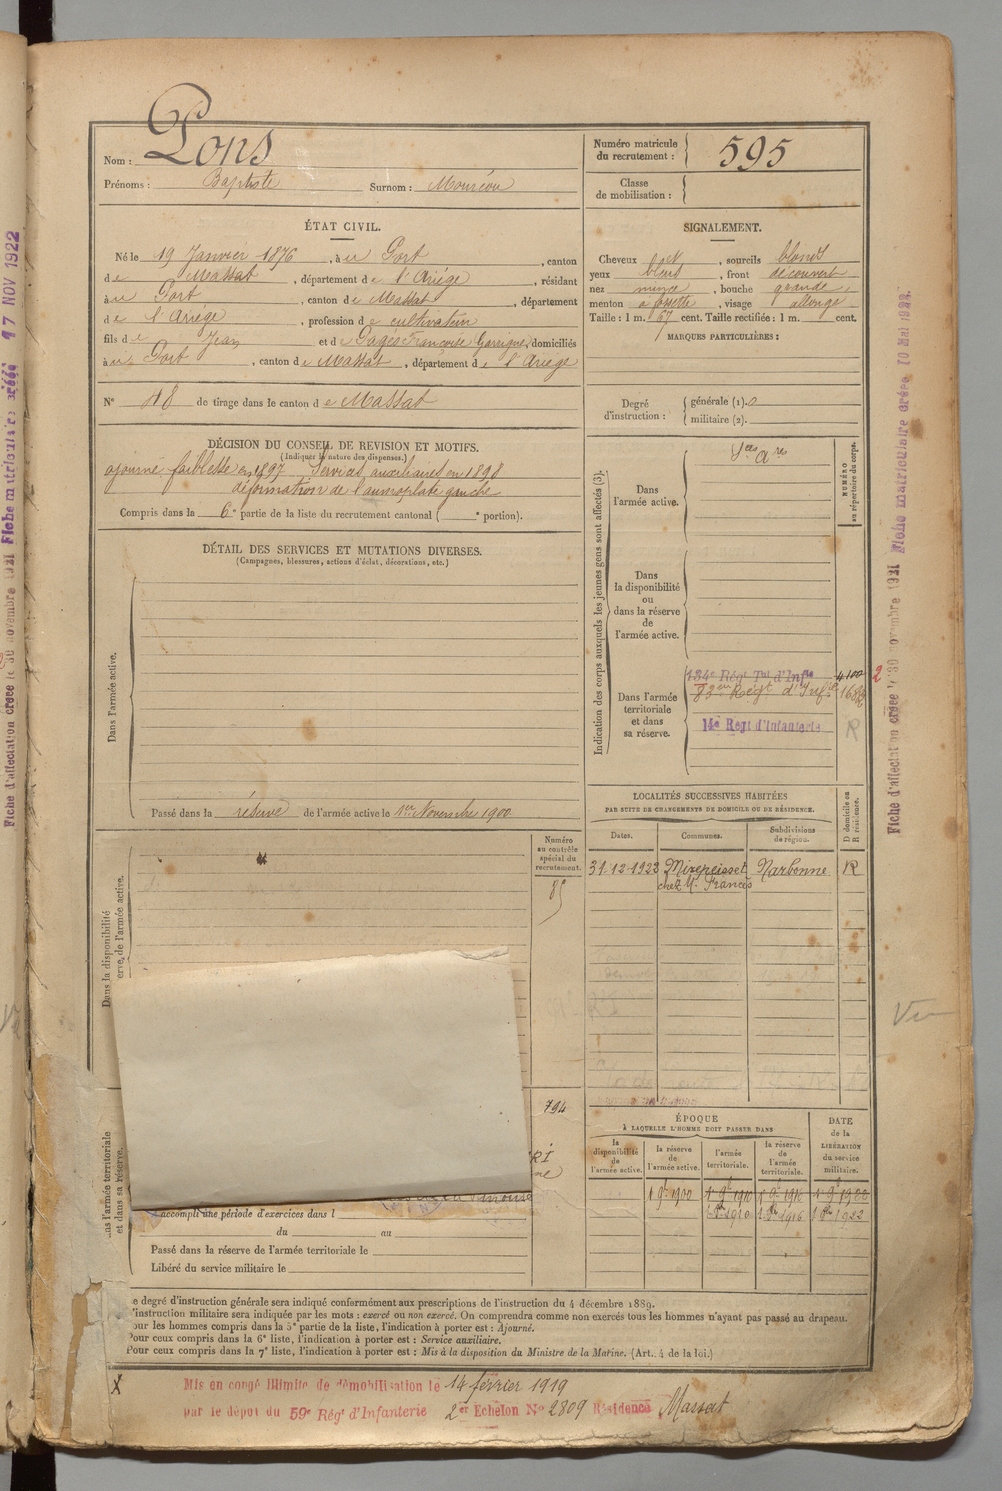 Nom : Pons
Prénoms : Baptiste Surnom : Mouréou
Numéro matricule du recrutement : 595
Classe de mobilisation :
ÉTAT CIVIL.
Né le 19 Janvier 1876, à u Port, canton
de Massat, département de l'Ariége, résidant
à u Port, canton de Massat, département
de l'Ariege, profession de cultivateur
fils de Jean et de Pagès Françoise Garrigue, domiciliés
à u Port, canton de Massat, département de l'Ariege
N° 18 de tirage dans le canton de Massat
DÉCISION DU CONSEIL DE REVISION ET MOTIFS.
(Indiquer la nature des dispenses.)
ajourné faiblesse en 1897 Services auxiliaires en 1898
déformation de l'aumoplate gauche
Compris dans la 6e partie de la liste du recrutement cantonal ( e portion).
DÉTAIL DES SERVICES ET MUTATIONS DIVERSES.
(Campagnes, blessures, actions d'éclat, décorations, etc.)
Dans l'armée active.
Passé dans la réserve de l'armée active le 1er Novembre 1900
SIGNALEMENT.
Cheveux , sourcils blonds
yeux bleus, front découvert
nez mince, bouche grande,
menton à fossette, visage allongé
Taille : 1 m. 67 cent. Taille rectifiée : 1 m. cent.
MARQUES PARTICULIÈRES :
Degré d'instruction : générale (1). 0
militaire (2).
Indication des corps auxquels les jeunes gens sont affectés (3).
NUMÉRO au répertoire du corps.
Dans l'armée active.
Sces Ares
Dans la disponibilité ou dans la réserve de l'armée active.
Dans l'armée territoriale et dans sa réserve.
134e Régt Tal d'Infie 4100 2
14e Régt d'Infanterie R
LOCALITÉS SUCCESSIVES HABITÉES
PAR SUITE DE CHANGEMENTS DE DOMICILE OU DE RÉSIDENCE.
Dates. Communes. Subdivisions de région. D domicile ou R résidence.
31-12-1922 Mirepeisset Narbonne R
chez M. Francès
Dans la disponibilité
erve, de l'armée active.
Numéro au contrôle spécial du recrutement.
85
794
ÉPOQUE
À LAQUELLE L'HOMME DOIT PASSER DANS
la disponibilité de l'armée active. la réserve de l'armée active. l'armée territoriale. la réserve de l'armée territoriale.
DATE de la LIBÉRATION du service militaire.
1 9e 1900 1 9e 1910 1 9e 1916 1 9e 1900
1910 1916 1922
l'armée territoriale
et dans sa réserve.
accompli une période d'exercices dans l
du au
Passé dans la réserve de l'armée territoriale le
Libéré du service militaire le
e degré d'instruction générale sera indiqué conformément aux prescriptions de l'instruction du 4 décembre 1889.
'instruction militaire sera indiquée par les mots : exercé ou non exercé. On comprendra comme non exercés tous les hommes n'ayant pas passé au drapeau.
our les hommes compris dans la 5e partie de la liste, l'indication à porter est : Ajourné.
Pour ceux compris dans la 6e liste, l'indication à porter est : Service auxiliaire.
Pour ceux compris dans la 7e liste, l'indication à porter est : Mis à la disposition du Ministre de la Marine. (Art. 4 de la loi.)
X Mis en congé illimité de démobilisation le 14 février 1919
par le dépôt du 59e Régt d'Infanterie 2er Echelon No 2809 Résidence Massat
Fiche d'affectation créée le 30 novembre 1921 Fiche matriculaire créée 17 NOV 1922
Fiche d'affectation créée le 30 novembre 1921 Fiche matriculaire créée 10 Mai 192